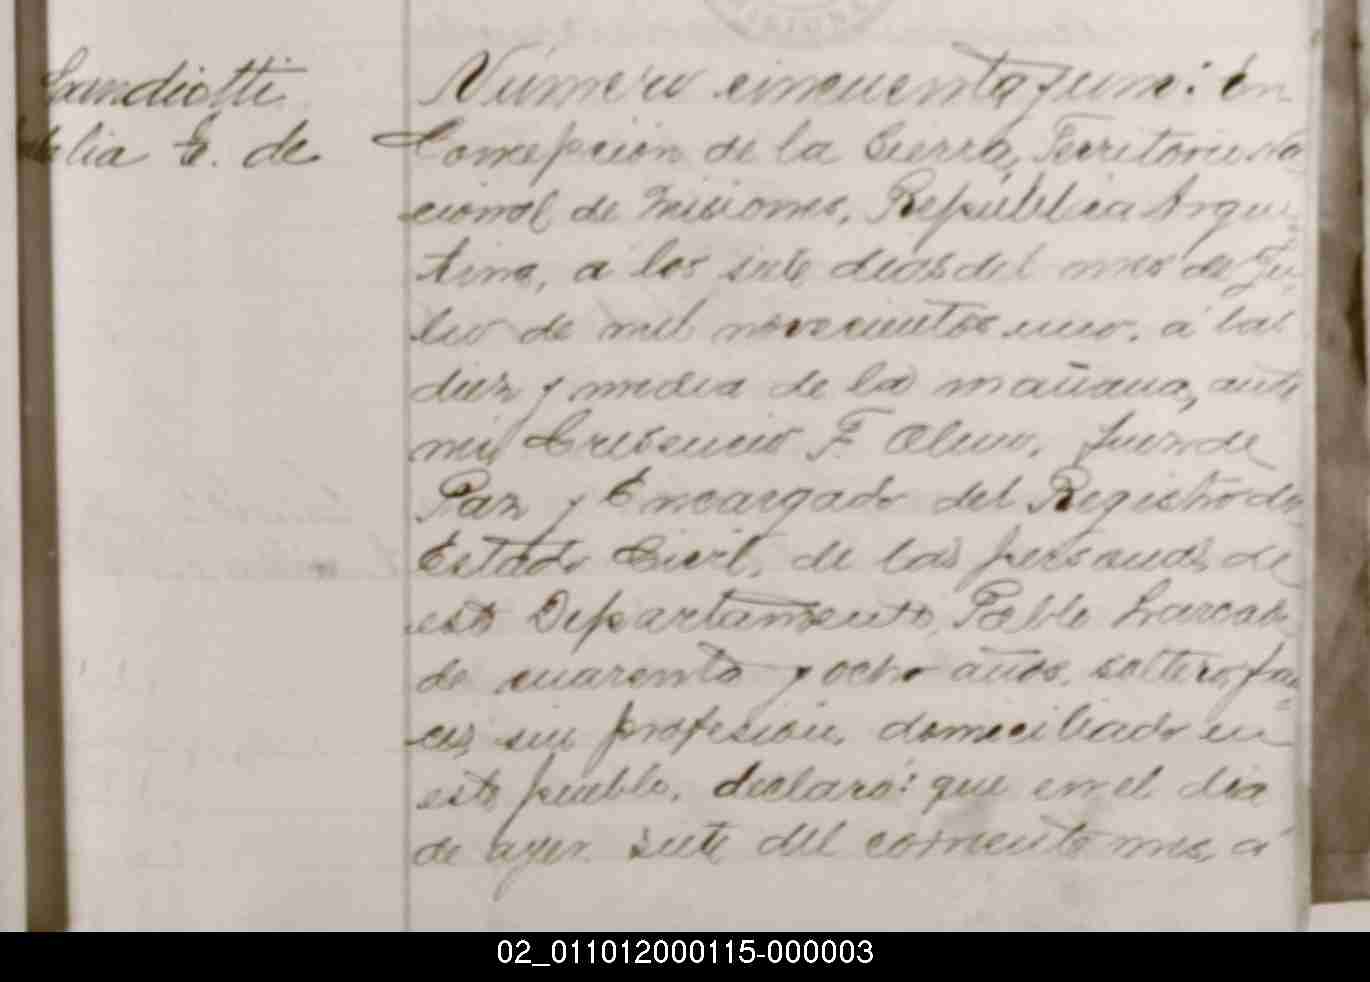 Landiotti
elia E. de
Número cincuenta y uno: En
Concepción de la Sierra, Territorio Na
cional de Misiones, República Argen
tina, a los siete dias del mes de Ju
lio de mil novecientos uno, á las
diez y media de la mañana, ante
mi, Cresencio F. Olivo, Juez de
Paz y Encargado del Registro del
Estado Civil, de las personas de
este Departamento, Pablo
de cuarenta y ocho años, soltero,
sin profesión, domiciliado en
este pueblo, declaró: que en el dia
de ayer siete del corriente mes, á
02_011012000115-000003